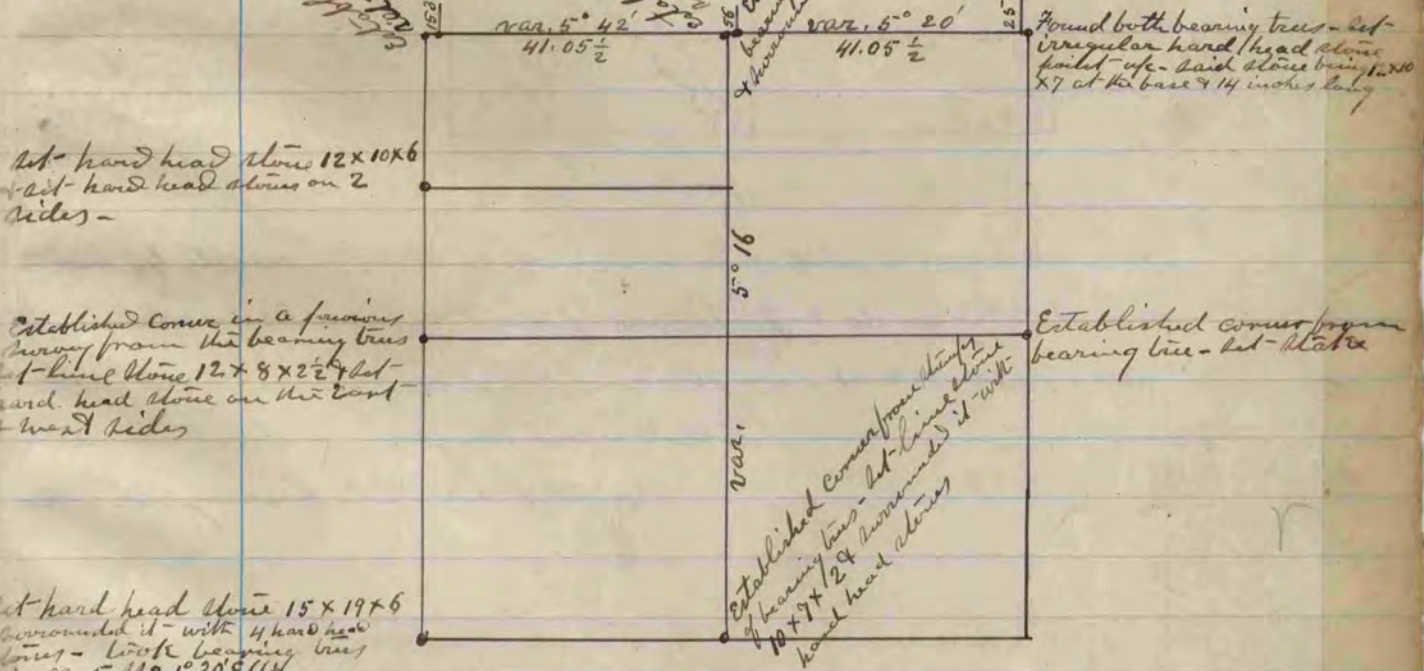 var. 5° 42'
41.05 ½
var. 5° 20'
41.05 ½
56
25
bearing
& surround
Found both bearing trees - set
irregular hard head stone
point up - said stone being 12 x 10
x 7 at the base & 14 inches long
set hard head stone 12 x 10 x 6
& set hard head stones on 2
sides -
var. 5° 16
Established corner in a previous
survey from the bearing trees
set lime stone 12 x 8 x 2½ & set
hard head stone on the East
& west sides
Established corner from
bearing tree - set stake
Established corner from stumps
of bearing trees - set lime stone
10 x 7 x 12 & surrounded it with
hard head stones
set hard head stone 15 x 19 x 6
surrounded it with 4 hard head
stones - took bearing trees